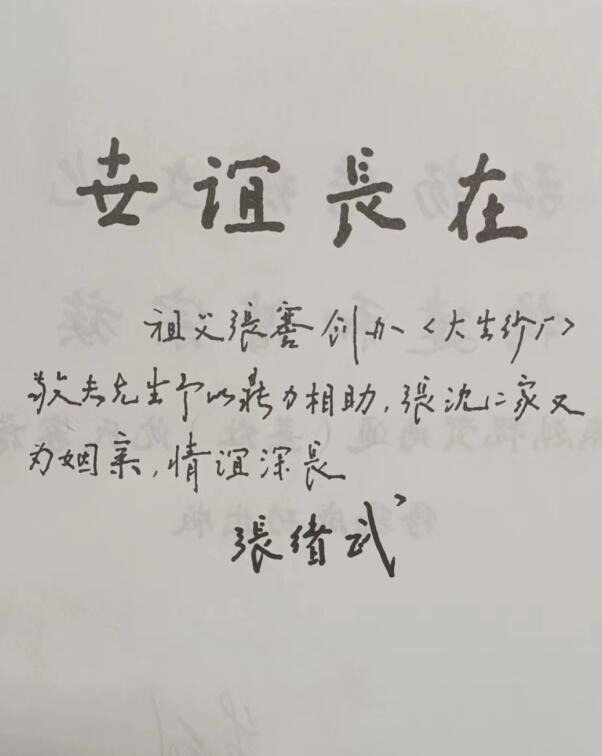 世谊長在
祖父張謇创办〈大生纱厂〉
敬夫先生予以鼎力相助,張沈二家又
为姻亲,情谊深長
張绪武